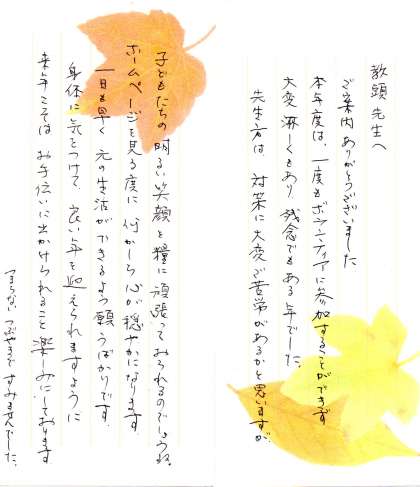 教頭先生へ
ご案内ありがとうございました
本年度は、一度もボランティアに参加することができず
大変淋しくもあり残念でもある年でした。
先生方は、対策に大変ご苦労があるかと思いますが、
子どもたちの明るい笑顔を糧に頑張っておられるのでしょうね。
ホームページを見る度に何かしら心が穏やかになります
一日も早く元の生活ができるよう願うばかりです。
身体に気をつけて良い年を迎えられますように
来年こそはお手伝いに出かけられること楽しみにしております
つまらないつぶやきですみませんでした。